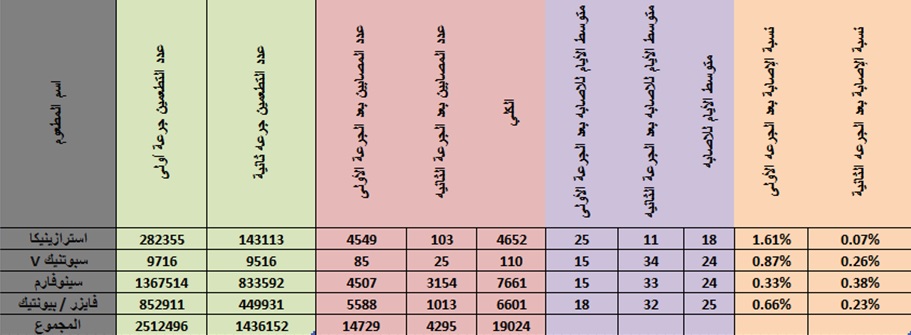 اسم المطعوم | عدد التطعمين جرعة أولى | عدد التطعمين جرعه ثانية | عدد المصابين بعد الجرعة الأولى | عدد المصابين بعد الجرعة الثانيه | الكلي | متوسط الأيام للاصابه بعد الجرعة الأولى | متوسط الأيام للاصابه بعد الجرعة الثانيه | متوسط الأيام للاصابه | نسبة الإصابة بعد الجرعه الأولى | نسبة الإصابة بعد الجرعة الثانية
استرازينيكا | 282355 | 143113 | 4549 | 103 | 4652 | 25 | 11 | 18 | 1.61% | 0.07%
سبوتنيك V | 9716 | 9516 | 85 | 25 | 110 | 15 | 34 | 24 | 0.87% | 0.26%
سينوفارم | 1367514 | 833592 | 4507 | 3154 | 7661 | 15 | 33 | 24 | 0.33% | 0.38%
فايزر / بيونتيك | 852911 | 449931 | 5588 | 1013 | 6601 | 18 | 32 | 25 | 0.66% | 0.23%
المجموع | 2512496 | 1436152 | 14729 | 4295 | 19024